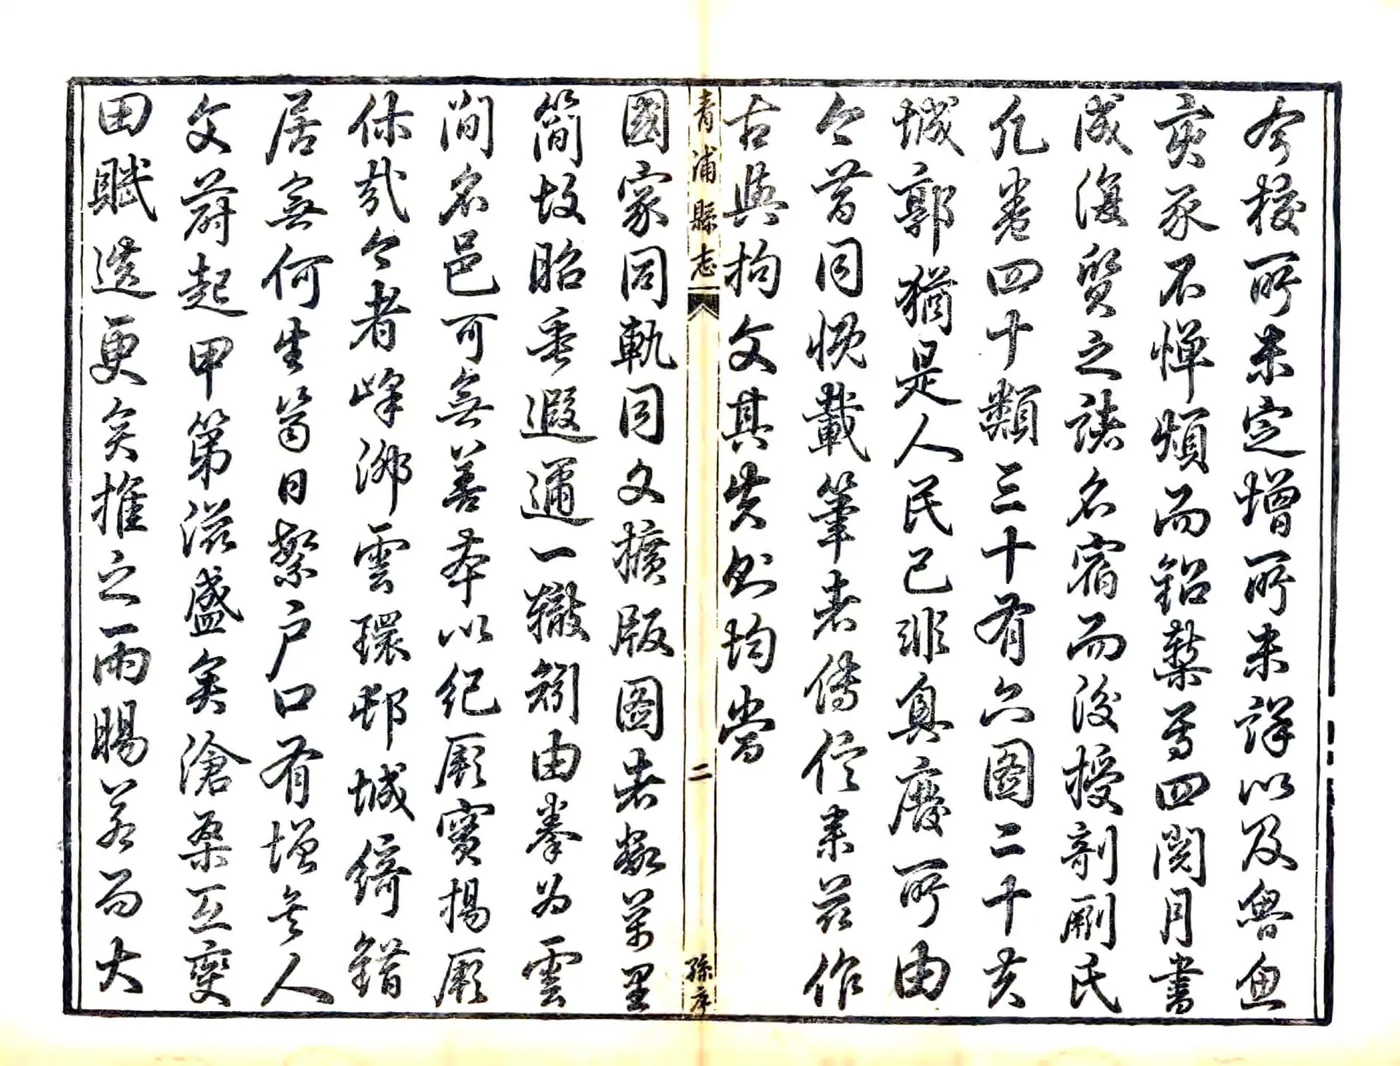 參校所未定增所未詳以及魯魚
亥豕不憚煩而鉛槧焉四閱月書
成復質之諸名宿而後授剞劂氏
凡卷四十類三十有六圖二十夫
城郭猶是人民已非興廢所由
今昔同慨載筆者傳信來茲作
古與拘文其失則均當
青浦縣志
二
孫序
國家同軌同文擴版圖者數萬里
簡故昭垂遐邇一轍矧由拳為雲
間名邑可無善本以紀厥實揚厥
休哉今者峰泖雲環邨城綺錯
居無何生齒日繁戶口有增矣人
文蔚起甲第滋盛矣滄桑互變
田賦迭更矣推之雨暘若而大